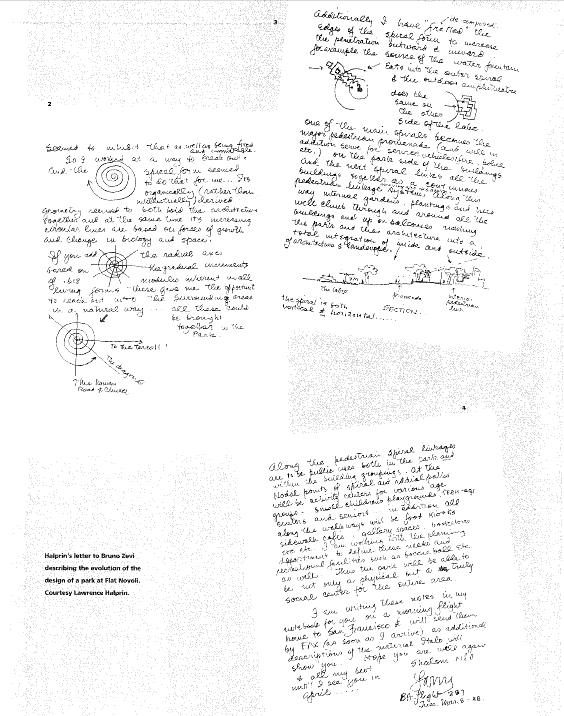 2
seemed to inhibit that as well as being tired
So I worked at a way to break out.
And the spiral form seemed
to do that for me... It's
organically (rather than
willfully) derived
geometry seemed to both hold the architecture
together and at the same time its increasing
circular lines are based on forces of growth
and change in biology and space.
If you add the radial axes
based on the gradual increments
of .618 modules inherent in all
living forms these gave me the
to reach out into the surrounding areas
in a natural way... all these could
be brought
together in the
Park.
To the
The
The
Road &
3
Additionally I have "fretted" the
edges of the spiral form to increase
the penetration outward & inward
for example the source of the water fountain
Eats into the outer spiral
& the outdoor amphitheatre
does the
same on
the other
side of the lake.
One of the main spirals becomes the
major pedestrian promenade (and will in
addition serve for service vehicles, fire, police
etc.) on the park side of the buildings
And the next spiral links all the
buildings together as a continuous
pedestrian linkage
way internal gardens, plantings and trees
will climb through and around all the
buildings and up on balconies making
the park and the architecture into a
total integration of inside and outside
of architecture & landscape!
The lake
Promenade
interior
pedestrian
The spiral is both
vertical & horizontal.....
SECTION.
4
Along the pedestrian spiral linkages
are to be public uses both in the park and
within the building groupings. At the
Nodal points of spiral and radial paths
will be activity centers for various age
groups - small children's playgrounds, teen-age
centers and seniors in addition all
along the walkways will be food kiosks
sidewalk cafes, gallery spaces, bookstores
etc etc. I am working with the planning
department to define these needs and
recreational facilities such as bocce ball etc
as well. Thus the park will be able to
be not only a physical but a truly
social center for the entire area
I am writing these notes in my
notebook for you on a morning flight
home to San Francisco & will send them
by FAX (as soon as I arrive) as additional
descriptions of the material Italo will
show you. Hope you are well again
& all my best
until I see you in
April.....
Shalom
Larry
BA flight 287
Tues. Mar. 8-88.
Halprin's letter to Bruno Zevi
describing the evolution of the
design of a park at Fiat Novoli.
Courtesy Lawrence Halprin.